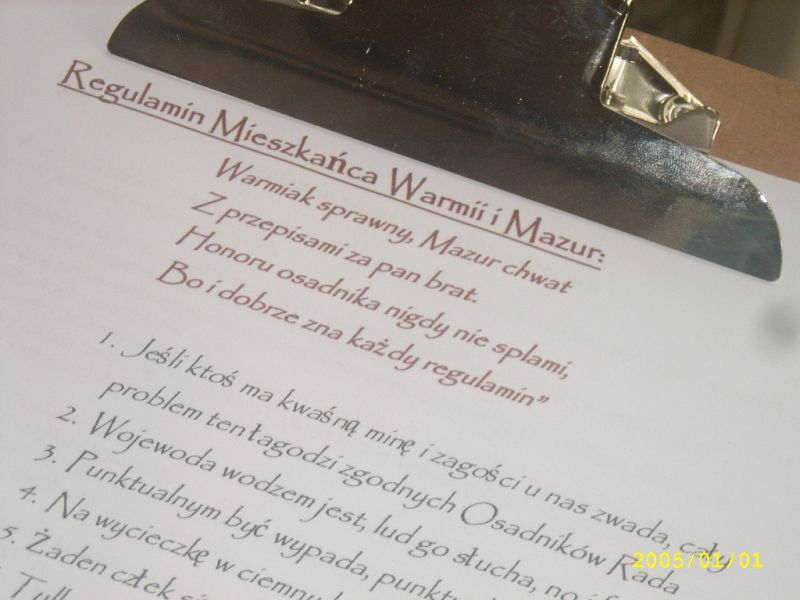 Regulamin Mieszkańca Warmii i Mazur:
Warmiak sprawny, Mazur chwat
Z przepisami za pan brat.
Honoru osadnika nigdy nie splami,
Bo i dobrze zna każdy regulamin”
1. Jeśli ktoś ma kwaśną minę i zagości u nas zwada, cały
problem ten łagodzi zgodnych Osadników Rada
2. Wojewoda wodzem jest, lud go słucha, no i
3. Punktualnym być wypada,
4. Na wycieczkę w
5. Żaden człek
2005/01/01